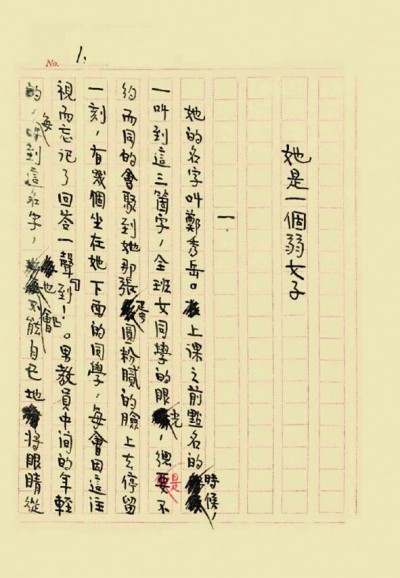 No. 1.
她是一個弱女子
一
她的名字叫鄭秀岳。上課之前點名的時候,
一叫到這三箇字,全班女同學的眼光,總要不
約而同的會聚到她那張蛋圓粉膩的臉上去停留
一刻,有幾個坐在她下面的同學,每會因這注
視而忘記了回答一聲「到!」。男教員中间的年輕
的,每叫到這名字,也會不能自已地將眼睛從